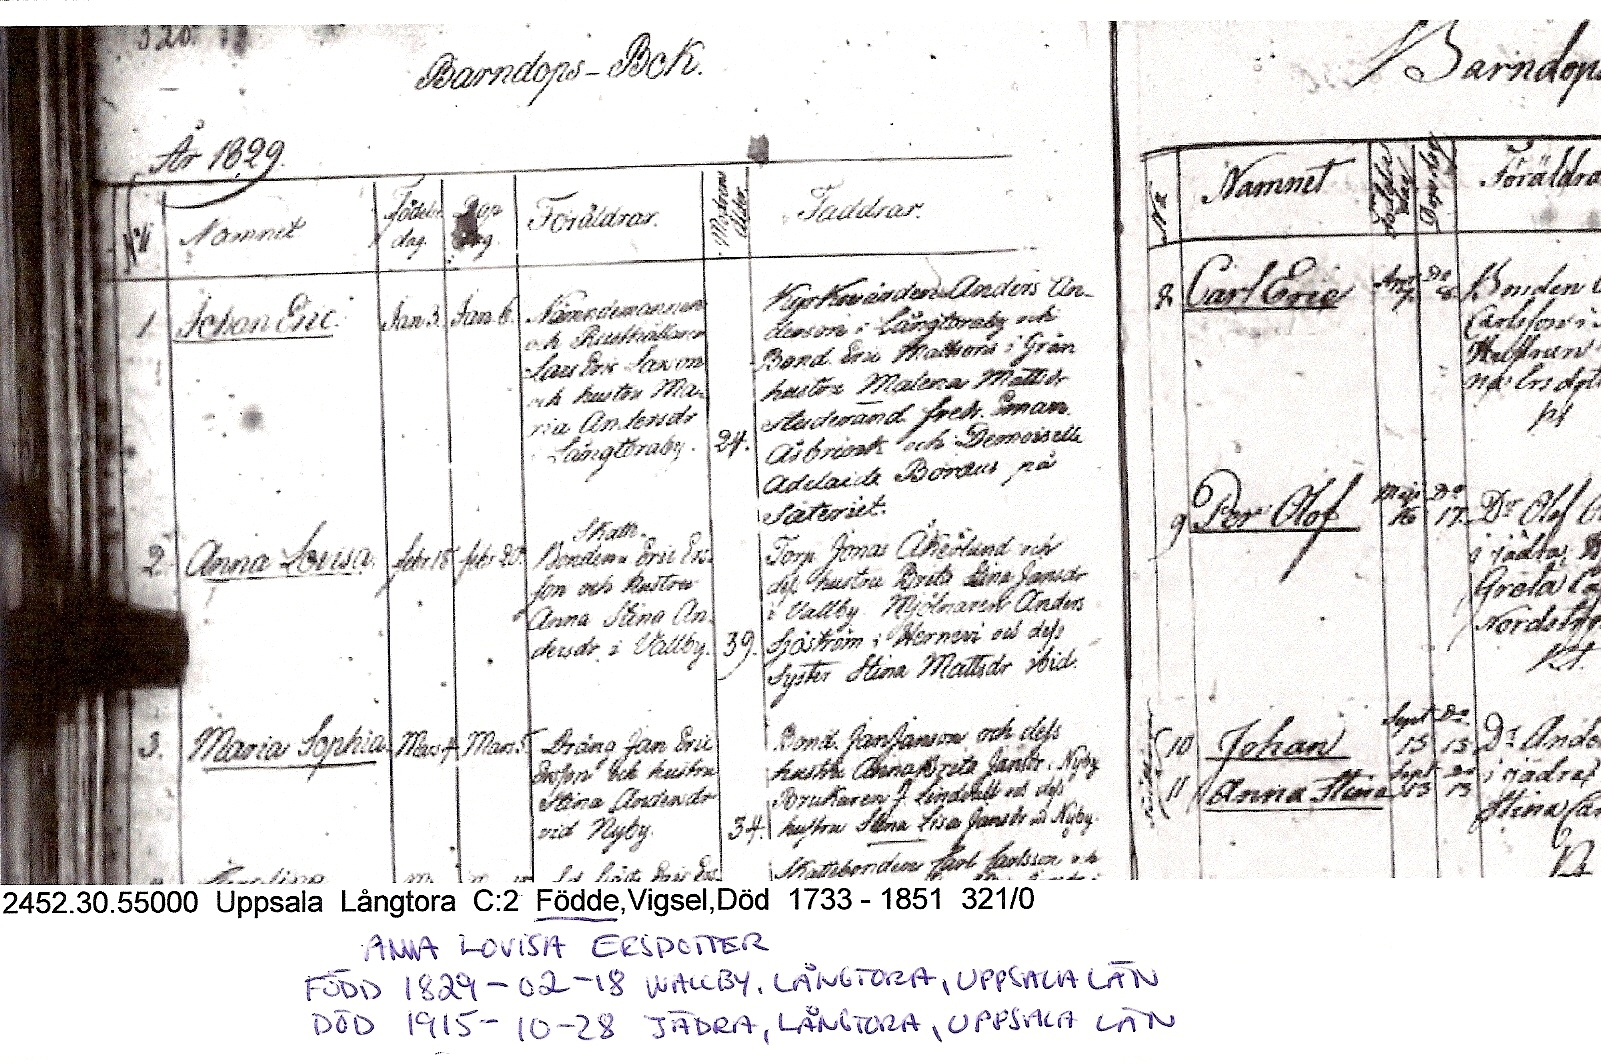 320.
Barndops-Bok.
År 1829.
No
Namnet
Födelse
dag.
Dop
dag.
Föräldrar.
Modrens
ålder.
Faddrar.
1.
Johan Eric.
Jan. 3.
Jan. 6.
Nämndemannen
och Rusthållaren
Lars Eric Larsson
och hustru Ma-
ria Andersdr
i Långtoraby.
24.
Kyrkovärden Anders An-
derson i Långtoraby och
Bond. Eric Mattsons i Grän
hustru Malena Mattsdr
Studerand. Fredr. Eman.
och Demoiselle
Adelaide på
Säteriet.
2.
Anna Lovisa.
febr. 18
febr. 20.
Skatte-
Bonden Eric Ers-
son och hustru
Anna Stina An-
dersdr. i Vallby.
39.
Torp. Jonas Åkerlund och
dess hustru Brita Stina Jansdr
i Vallby. Mjölnaren Anders
Sjöström i Hernevi och dess
Syster Stina Mattsdr ibid.
3.
Maria Sophia.
Mars 4.
Mars 5.
Dräng Jan Eric
Ersson och hustru
Stina Andersdr
vid Nyby.
34.
Bond. Jan Janson och dess
hustru Anna Brita Jansdr i Nyby
Brukaren J. Lindvall och dess
hustru Stina Lisa Jansdr vid Nyby.
Skattebonden Carl Carlsson och
Barndops
No
Namnet
Födelse
dag
Dopsdag
Föräldra
8
Carl Eric
Do
Bonden
Carlsson i
Hustrun
9
Per Olof
Maji
16
Do
17.
Dr Olof
i jädra,
Greta
10
Johan
Sept
13
Do
13
Dr Ande
i jädra
11
Anna Stina
Sept
13
Do
13
Stina Car
2452.30.55000 Uppsala Långtora C:2 Födde,Vigsel,Död 1733 - 1851 321/0
ANNA LOVISA ERSDOTTER
FÖDD 1829-02-18 WALLBY, LÅNGTORA, UPPSALA LÄN
DÖD 1915-10-28 JÄDRA, LÅNGTORA, UPPSALA LÄN